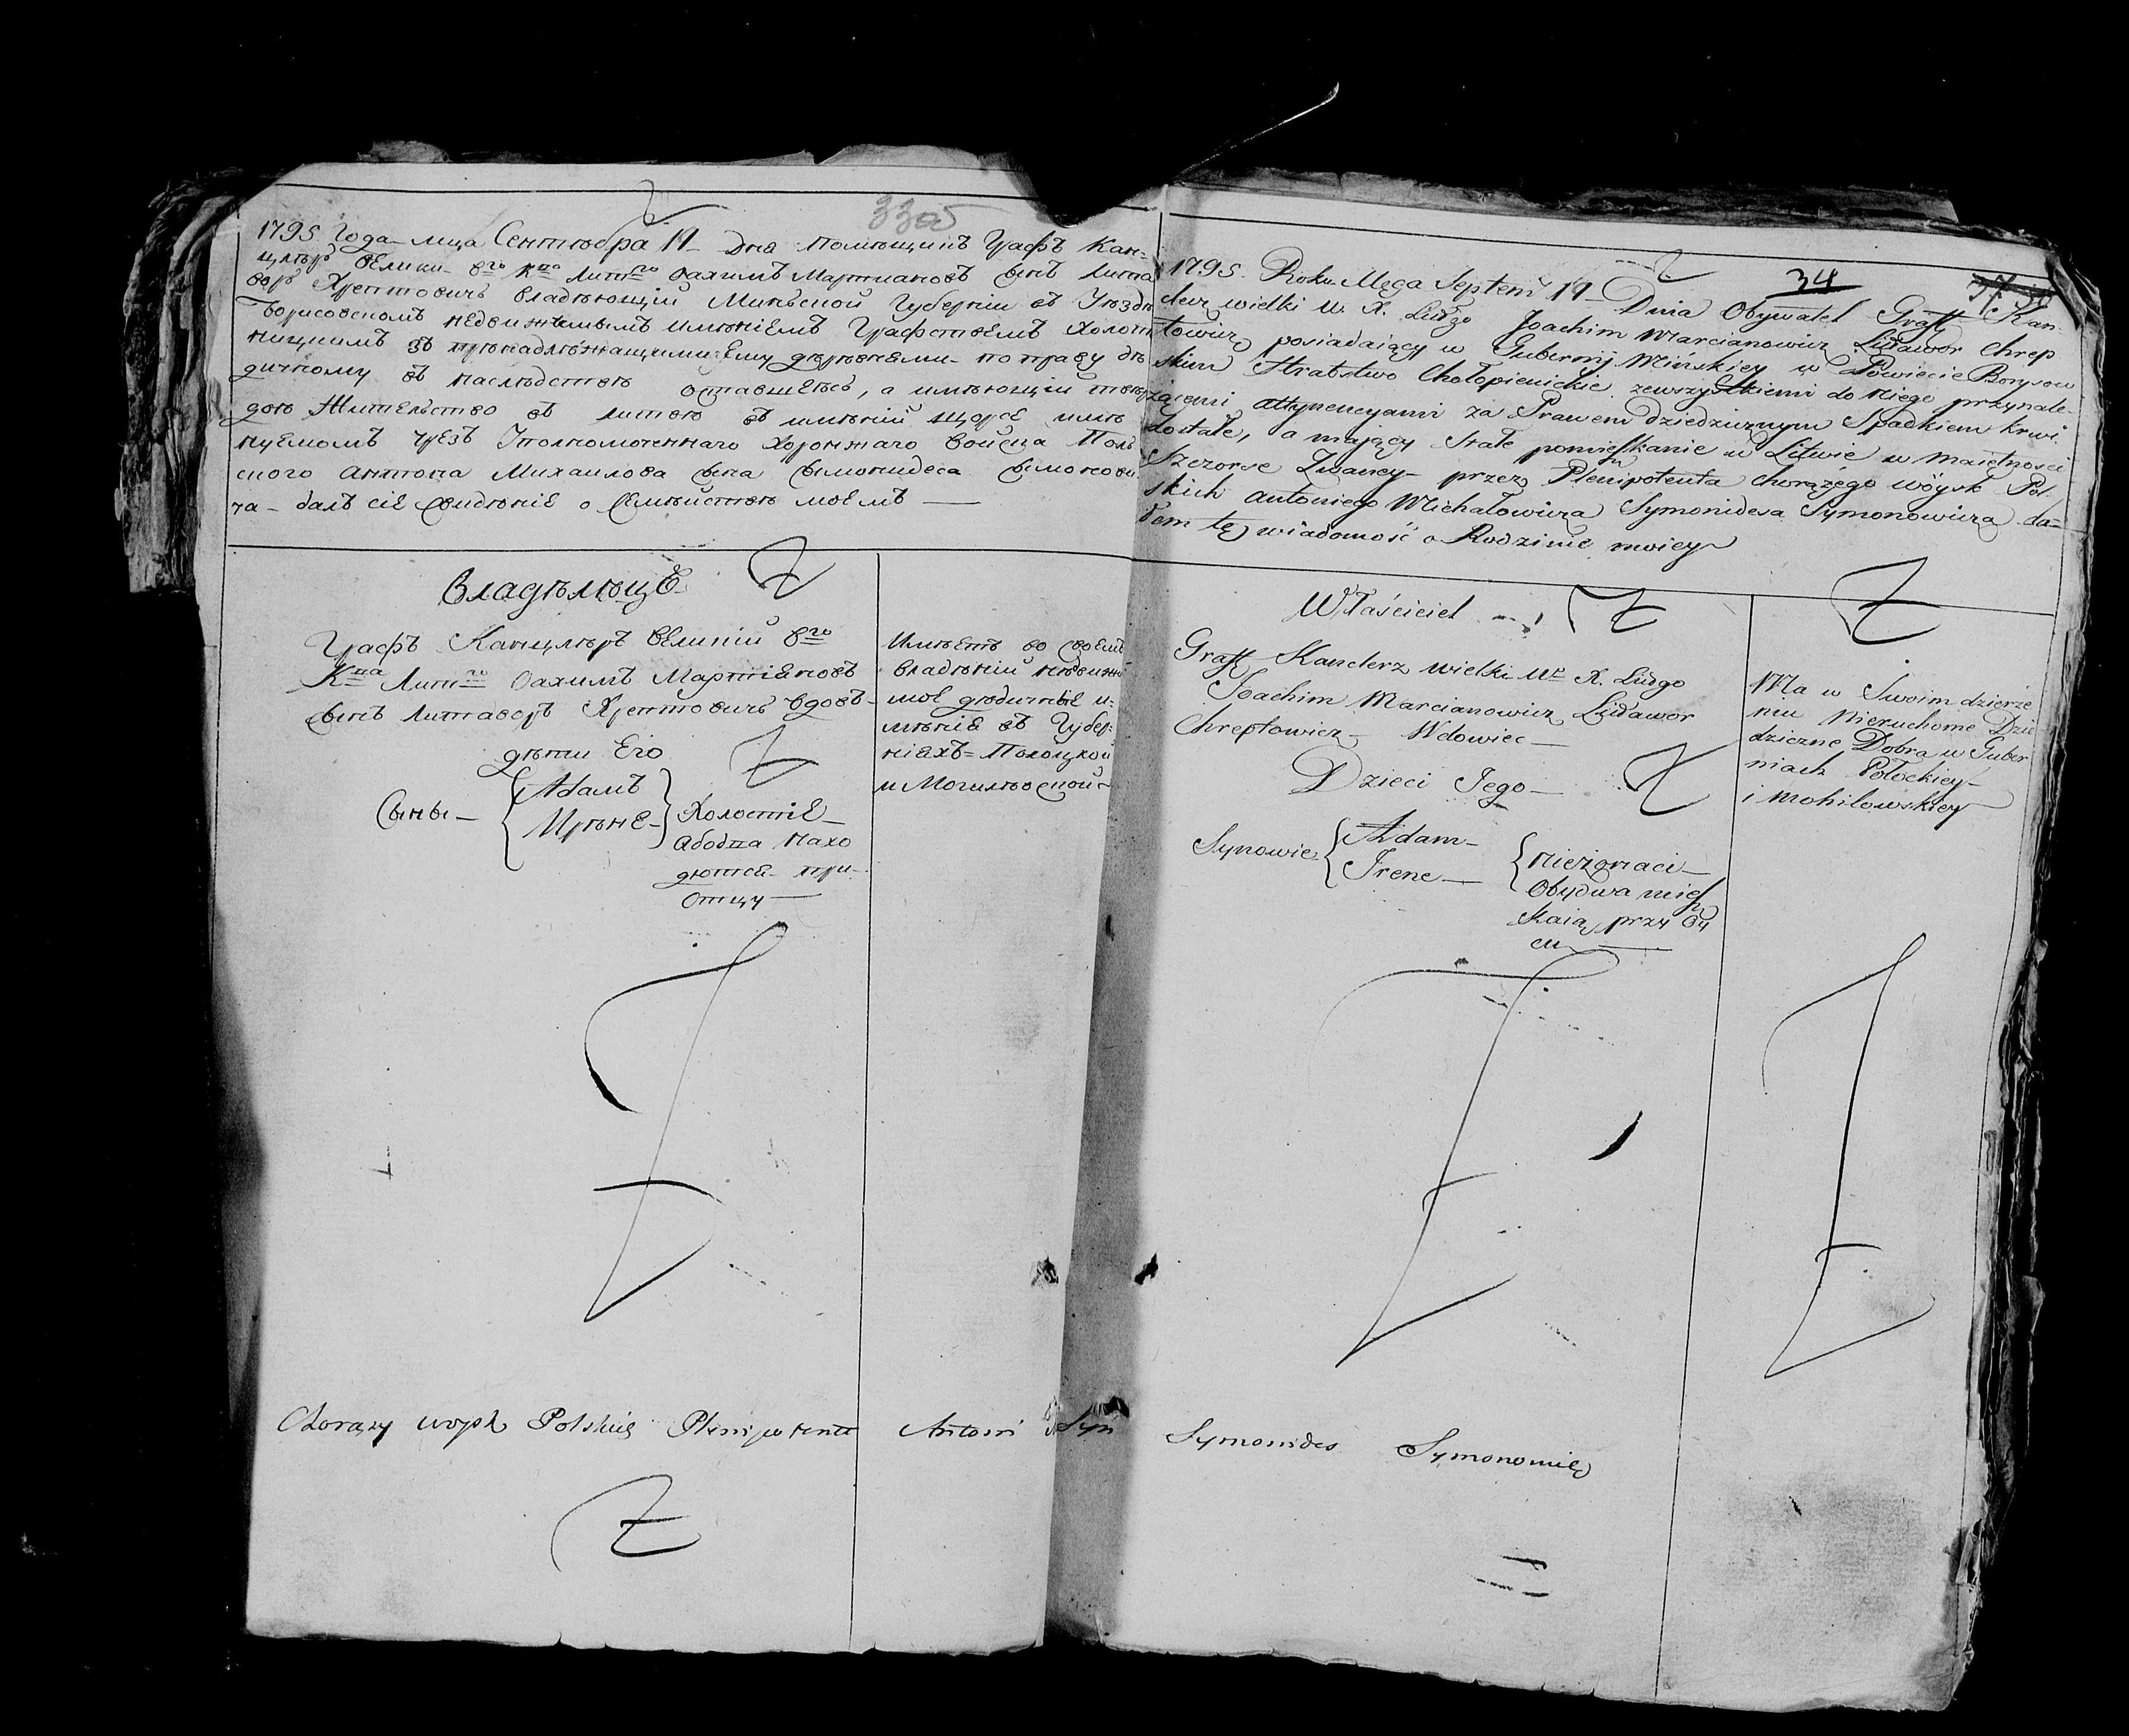 33об
1795 Года мца Сентября 19 Дня Помѣщикъ Графъ Кан-
цлѣръ Велики В го К ва Лит го Оахимъ Мартиановъ сынъ Лита
воръ Хрептовичъ владѣющій Минской Губерніи въ Уѣздѣ
Борисовскомъ недвижемымъ имѣніемъ Графствемъ Холопѣ
ницкимъ зъ пренадлѣжащими Ему дѣревнями по праву дѣ
дичному въ наслѣдствѣ оставшеесь, а имѣющій
Жительство въ литвѣ въ имѣній Щорсе имѣ
нуемомъ чрезъ Уполномоченнаго Хоронжаго Войска Поль
ского Антона Михаилова сына Сымонидеса Сымонови
ча далъ сіе свидѣніе о Семѣйствѣ моемъ
Владѣлецъ
Графъ Канцлѣръ Великій В го
К ва Лит го Оахимъ Мартіановъ
сынъ Литаворъ Хрептовичъ вдовъ
дѣти Его
Сыны Адамъ
Ирѣне Холостіе
Абодва нахо
дятся при
Отцу
Имѣетъ во своемъ
владѣній недвижи
мое дедичные и-
мѣнія въ Губер-
ніяхъ Полоцкой
и Могилевской
34
1795. Roku Mca Septem 19 Dnia Obywatel Graff Kan
clerz wielki W. X. Littgo Joachim Marcianowicz Littawor Chrep
towicz posiadaiący w Gubernij Mińskiey w Powiecie Borysow
skim Hrabstwo Chołopienickie zewszystkiemi do niego przynale-
żącemi attynencyami za Prawem dziedzicznym Spadkiem krwi
dostałe, a maiący stałe pomieszkanie w Litwie w maiętnosci
Szczorse Zwaney przez Plenipotenta chorążego wóysk Pol-
skich Antoniego Michałowicza Symonidesa Symonowicza da=
dem tę wiadomość o Rodzinie moiey
Właściciel
Graff Kanclerz wielki W X. Littgo
Joachim Marcianowicz Littawor
Chreptowicz Wdowiec
Dzieci Jego
Synowie Adam
Irene nieżonaci
Obydwa miesz
kaią przy Oy
cu
Ma w Swoim dzierże
niu Nieruchome Dzie
dziczne Dobra w Guber
niach Połockiey
i Mohilowskiey
Chorąży woysk Polskich Plenipotent Antoni Syn Symonides Symonowicz